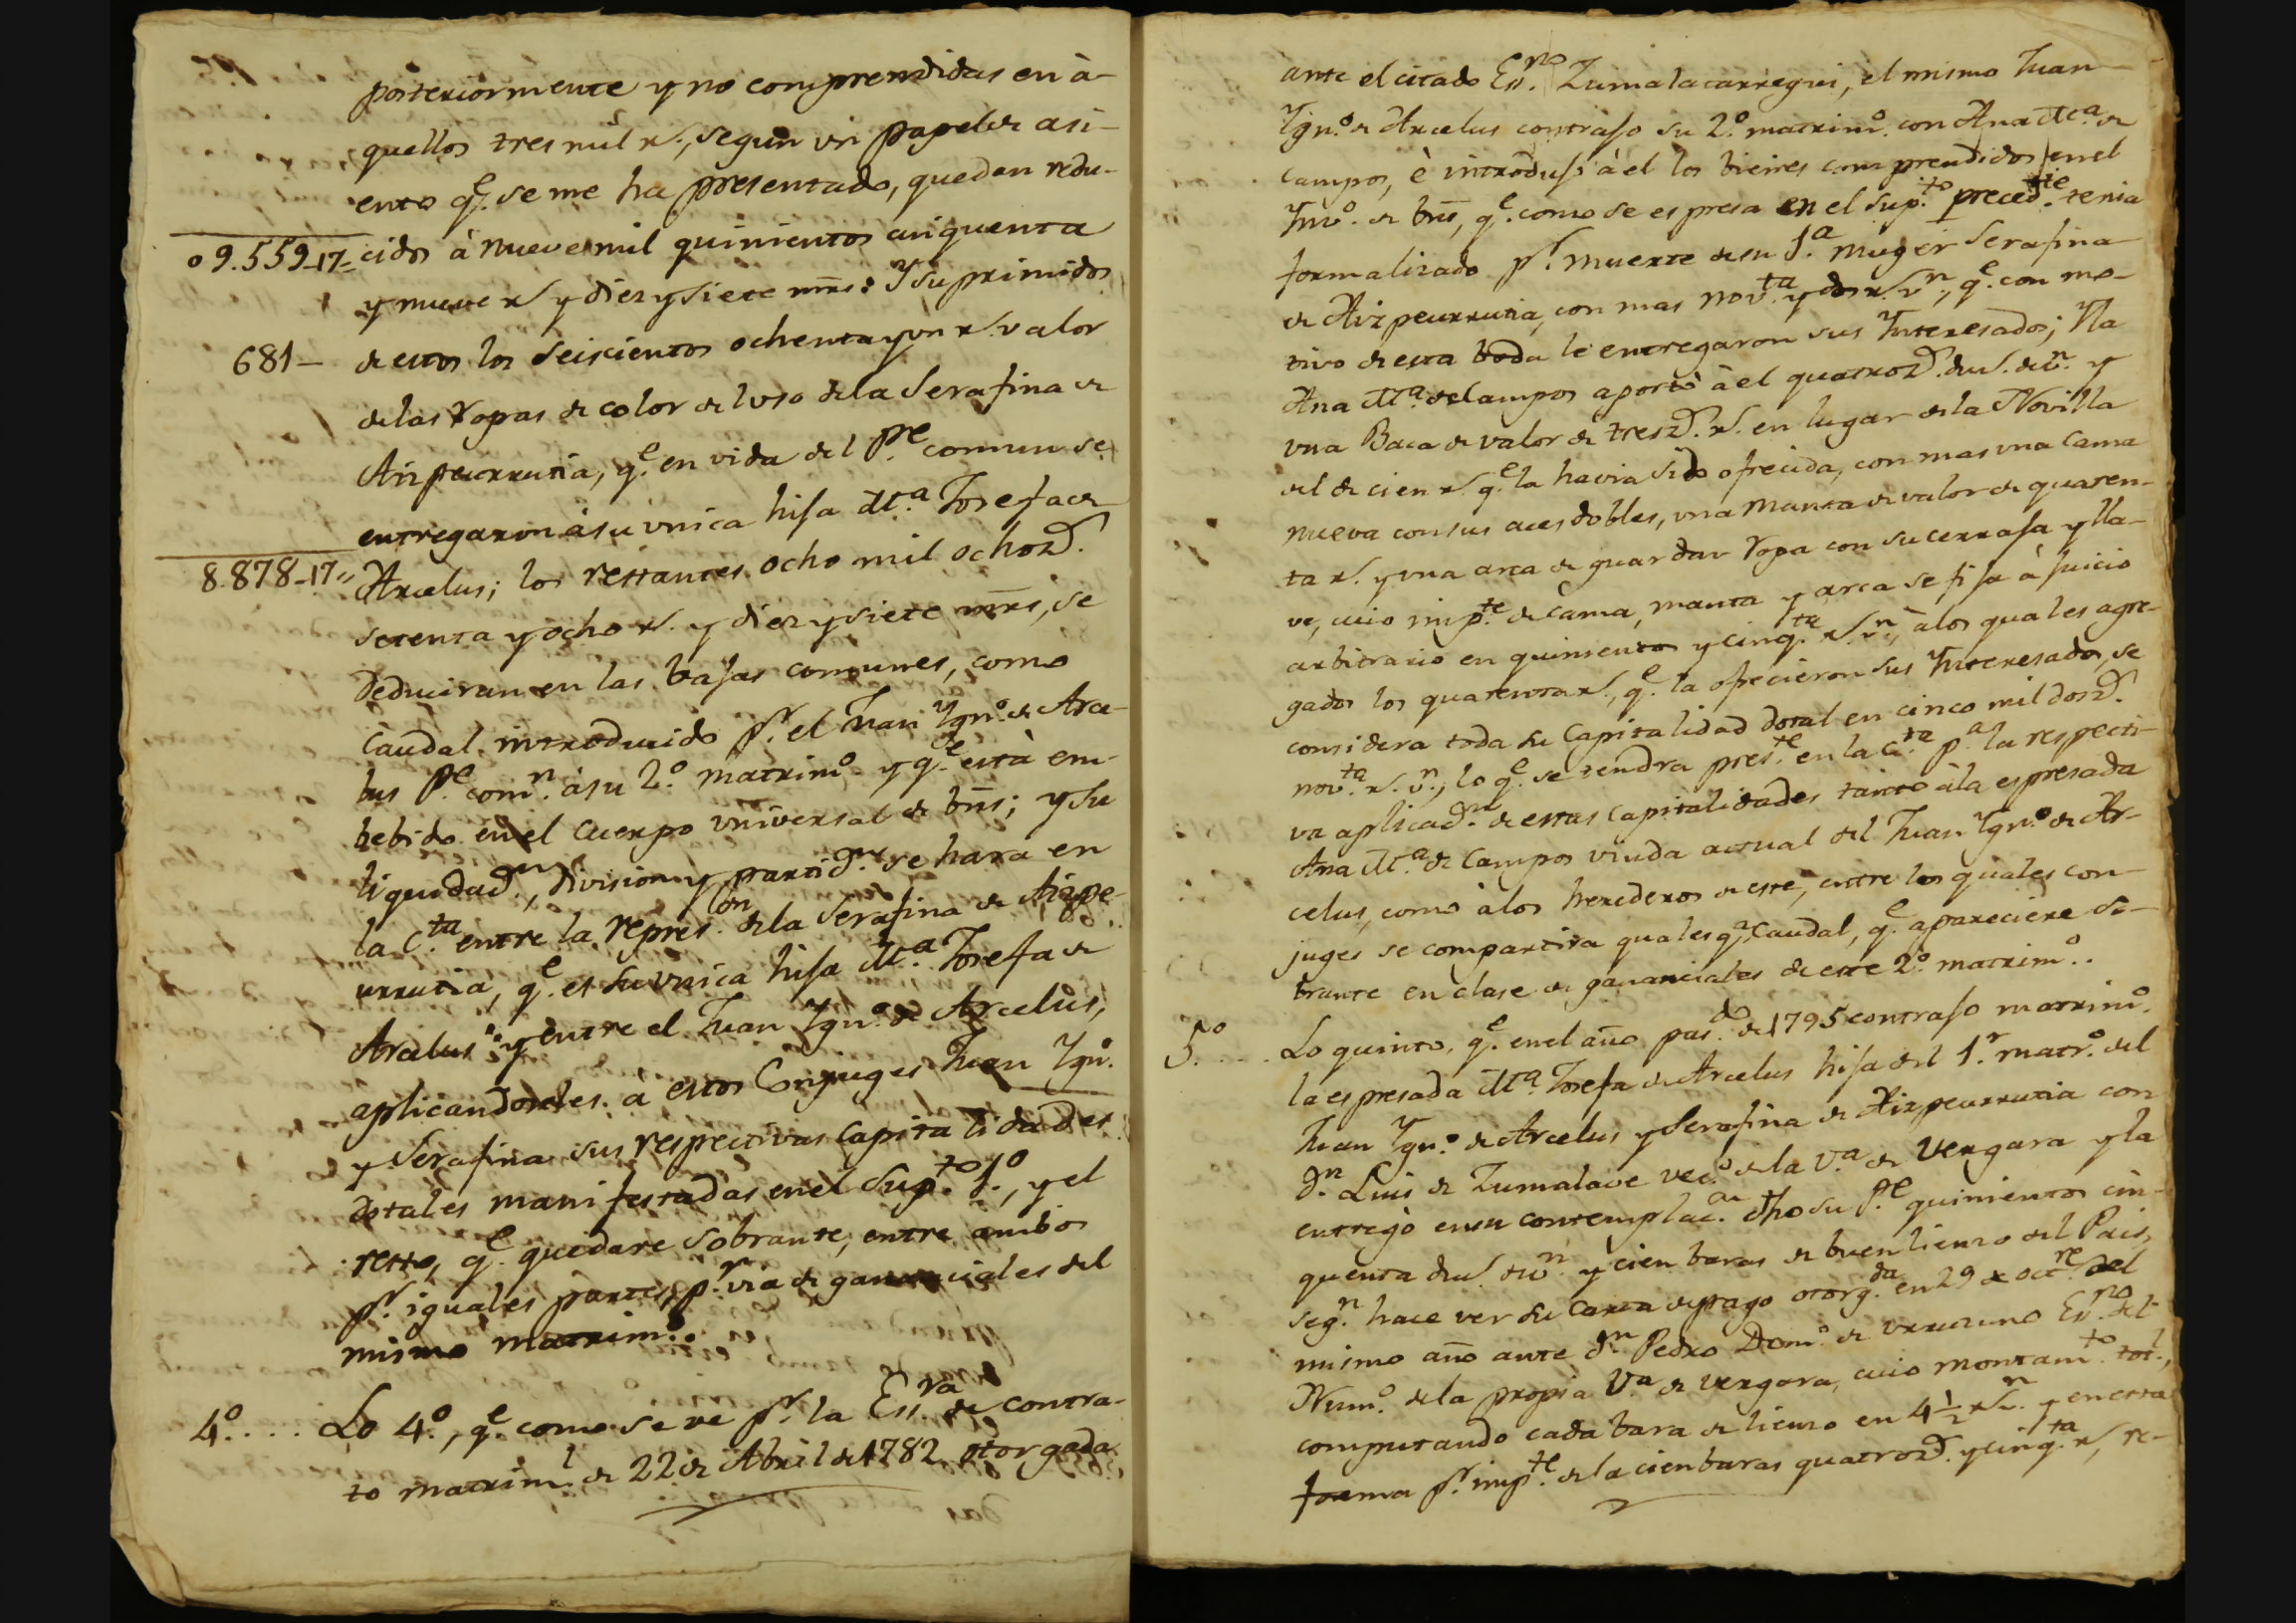 posteriormente y no comprendidas en à-
quellos tres mil rs., segun un papel de asi-
ento qe. se me ha presentado, quedan redu-
09.559-17= cidos à nueve mil quinientos cinquenta
y nueve rs y diez y siete mrs: Y suprimidos
681- de estos los seiscientos ochenta y un rs. valor
de las ropas de color del uso de la Serafina de
Aizpeurrutia, qe. en vida del Pe. comun se
entregaron à su unica hija Ma. Josefa de
8.878-17" Arcelus; los restantes ocho mil ochozs.
setenta y ocho rs. y diez y siete mrs, se
deduciran en las bajas comunes, como
Caudal introducido pr. el Juan Ygno. de Arce-
lus Pe. comn. à su 2o. matrimo. y qe. està em-
bebido en el Cuerpo universal de bns; y su
liquidadn., division y partidn. se hara en
la Cta. entre la represon. de la Serafina de Aizpe-
urrutia, qe. es su unica hija Ma. Josefa de
Arcelus: y entre el Juan Ygno. de Arcelus,
aplicandoseles à estos Conjuges Juan Ygno.
y Serafina sus respectivas Capitalidades
dotales manifestadas en el Supto. 1o., y el
resto, qe. quedare sobrante, entre ambos
pr. iguales partes, pr. via de gananciales del
mismo matrimo.
4o.... Lo 4o., qe. como se ve pr. la Esra. de contra-
to matriml. de 22 de Abril de 1782 otorgada
ante el citado Esno. Zumalacarregui, el mismo Juan
Ygno. de Arcelus contrajo su 2o. matrimo. con Ana Ma. de
Campos, è introdujo à el los bienes comprendidos en el
Ynvo. de bns, qe. como se espresa en el supto. precedte. tenia
formalizado pr. muerte de su 1a. muger Serafina
de Aizpeurrutia, con mas novta. y dos rs. vn., qe. con mo-
tivo de esta boda le entregaron sus Ynteresados; Y la
Ana Ma. de Campos aportò à el quatrozs. dus. de vn. y
una Baca de valor de treszs. rs. en lugar de la Novilla
del de cien rs. qe. la havia sido ofrecida, con mas una Cama
nueva con sus aces dobles, una Manta de valor de quaren-
ta rs. y una arca de guardar ropa con su cerraja y lla-
ve, cuio impte. de cama, manta y arca se fija à juicio
arbitrario en quinientos y cinqta. rs. vn., à los quales agre-
gados los quarenta rs., qe. la ofrecieron sus Ynteresados, se
considera toda su Capitalidad dotal en cinco mil doszs.
novta. rs. vn., lo qe. se tendra preste. en la Cta. pa. la respecti-
va aplicadn. de estas Capitalidades tanto à la espresada
Ana Ma. de Campos viuda actual del Juan Ygno. de Ar-
celus, como à los herederos de este, entre los quales con-
juges se compartira qualesqa. Caudal, qe. apareciere so-
brante en clase de gananciales de este 2o. matrimo.
5o.... Lo quinto, qe. en el año pasdo. de 1795 contrajo matrimo.
la espresada Ma. Josefa de Arcelus hija del 1r. matro. del
Juan Ygno. de Arcelus y Serafina de Aizpeurrutia con
dn. Luis de Zumalave veco. de la Va. de Vergara y la
entregò en su contemplacn. dho su Pe. quinientos cin-
quenta dus. de vn. y cien baras de buen lienzo del Pais,
segn. hace ver su Carta de pago otorgda. en 29 de octre. del
mismo año ante dn. Pedro Domo. de Esno. del
Numo. de la propia Va. de Vergara, cuio montamto. totl.,
computando cada bara de lienzo en 4 1/2 rs. vn. y en esta
forma pr. impte. de la cien baras quatrozs. y cinqta. rs, re-